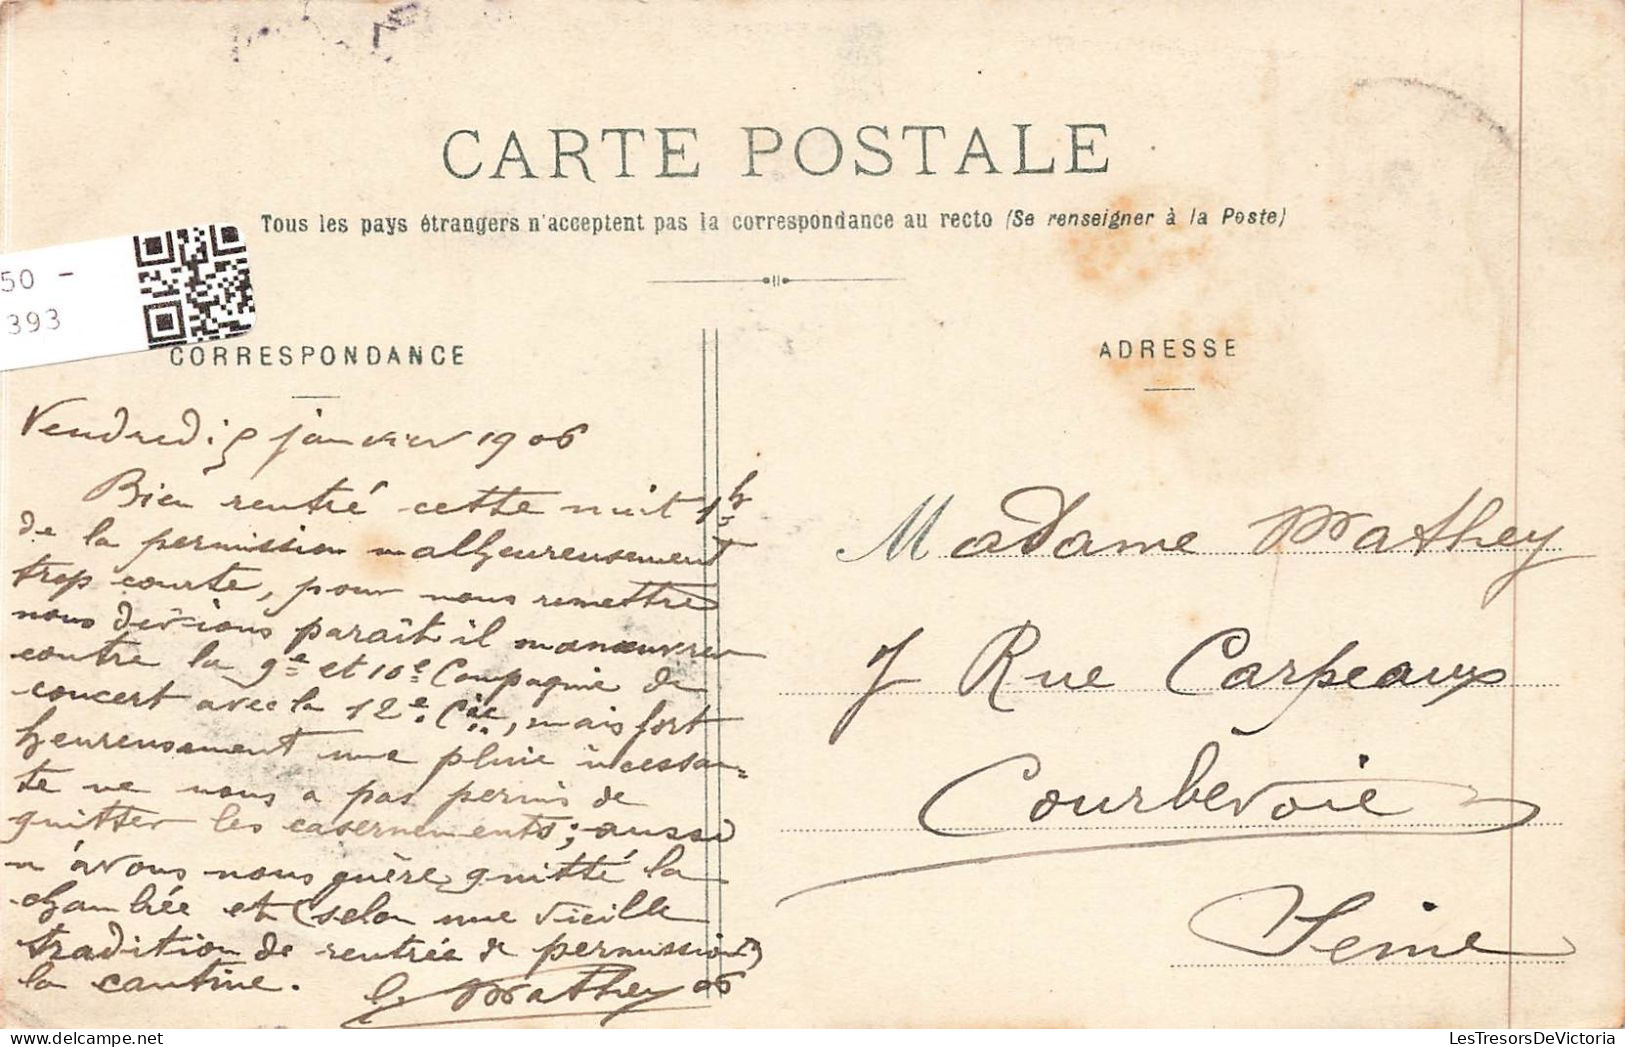 CARTE POSTALE
Tous les pays étrangers n'acceptent pas la correspondance au recto (Se renseigner à la Poste)
50 -
393
CORRESPONDANCE
ADRESSE
Vendredi 5 janvier 1906
Bien rentré cette nuit 1h
de la permission malheureusement
trop courte, pour nous remettre
nous devions paraît il manœuvrer
contre la 9e et 10e Compagnie de
concert avec la 12e Cie, mais fort
heureusement une pluie incessan=
te ne nous a pas permis de
quitter les casernements; aussi
n'avons nous guère quitté la
chambrée et (selon une vieille
tradition de rentrée de permission)
la cantine. Mathey 06
Madame Mathey
7 Rue Carpeaux
Courbevoie
Seine
LesTresorsDeVictoria